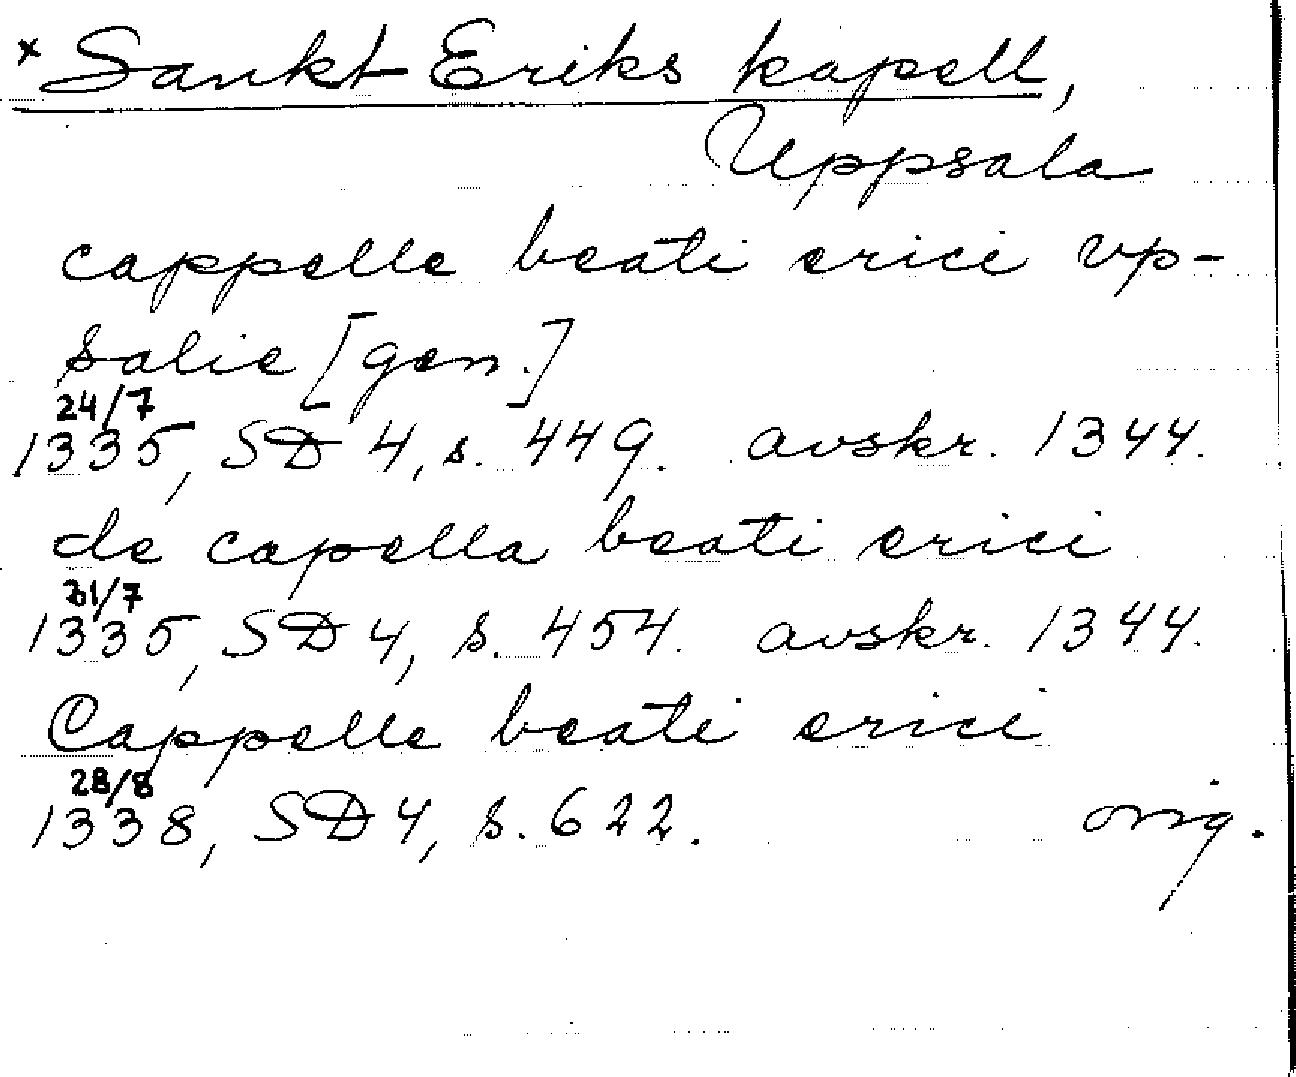 * Sankt Eriks kapell,
Uppsala
cappelle beati erici vp-
salie [gen.]
24/7
1335, SD 4, s. 449. avskr. 1344.
de capella beati erici
31/7
1335, SD 4, s. 454. avskr. 1344.
Cappelle beati erici
28/8
1338, SD 4, s. 622. orig.